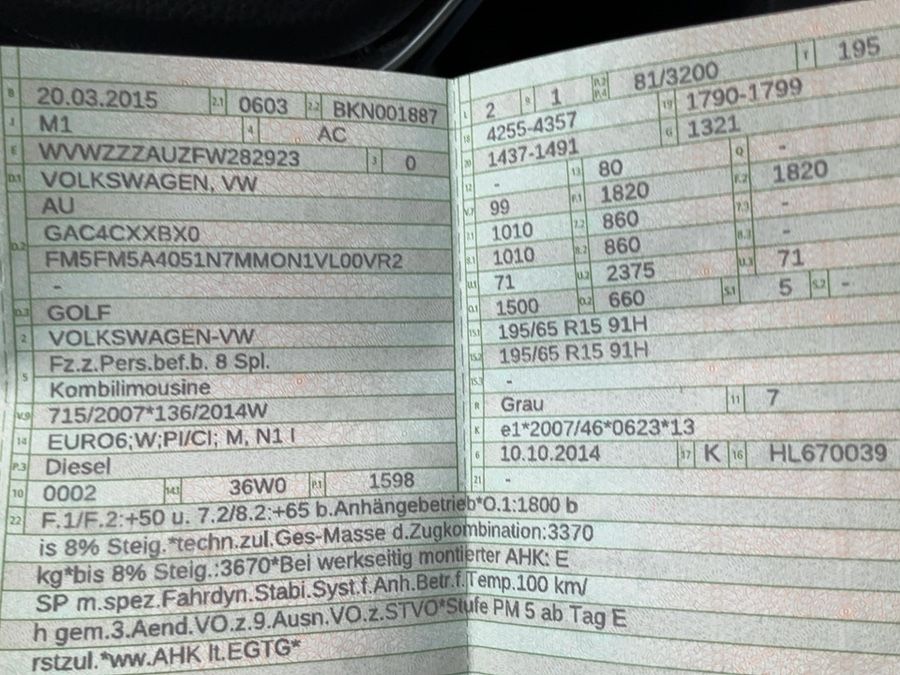 B 20.03.2015 2.1 0603 2.2 BKN001887
J M1 4 AC
E WVWZZZAUZFW282923 3 0
D.1 VOLKSWAGEN, VW
AU
D.2 GAC4CXXBX0
FM5FM5A4051N7MMON1VL00VR2
-
D.3 GOLF
2 VOLKSWAGEN-VW
5 Fz.z.Pers.bef.b. 8 Spl.
Kombilimousine
V.9 715/2007*136/2014W
14 EURO6;W;PI/CI; M, N1 I
P.3 Diesel
10 0002 14.1 36W0 P.1 1598
L 2 9 1 P.2 P.4 81/3200 T 195
18 4255-4357 19 1790-1799
20 1437-1491 G 1321
12 - 13 80 Q -
V.7 99 F.1 1820 F.2 1820
7.1 1010 7.2 860 7.3 -
8.1 1010 8.2 860 8.3 -
U.1 71 U.2 2375 U.3 71
O.1 1500 O.2 660 S.1 5 S.2 -
15.1 195/65 R15 91H
15.2 195/65 R15 91H
15.3 -
R Grau 11 7
K e1*2007/46*0623*13
6 10.10.2014 17 K 16 HL670039
21 -
22 F.1/F.2:+50 u. 7.2/8.2:+65 b.Anhängebetrieb*O.1:1800 b
is 8% Steig.*techn.zul.Ges-Masse d.Zugkombination:3370
kg*bis 8% Steig.:3670*Bei werkseitig montierter AHK: E
SP m.spez.Fahrdyn.Stabi.Syst.f.Anh.Betr.f.Temp.100 km/
h gem.3.Aend.VO.z.9.Ausn.VO.z.STVO*Stufe PM 5 ab Tag E
rstzul.*ww.AHK lt.EGTG*